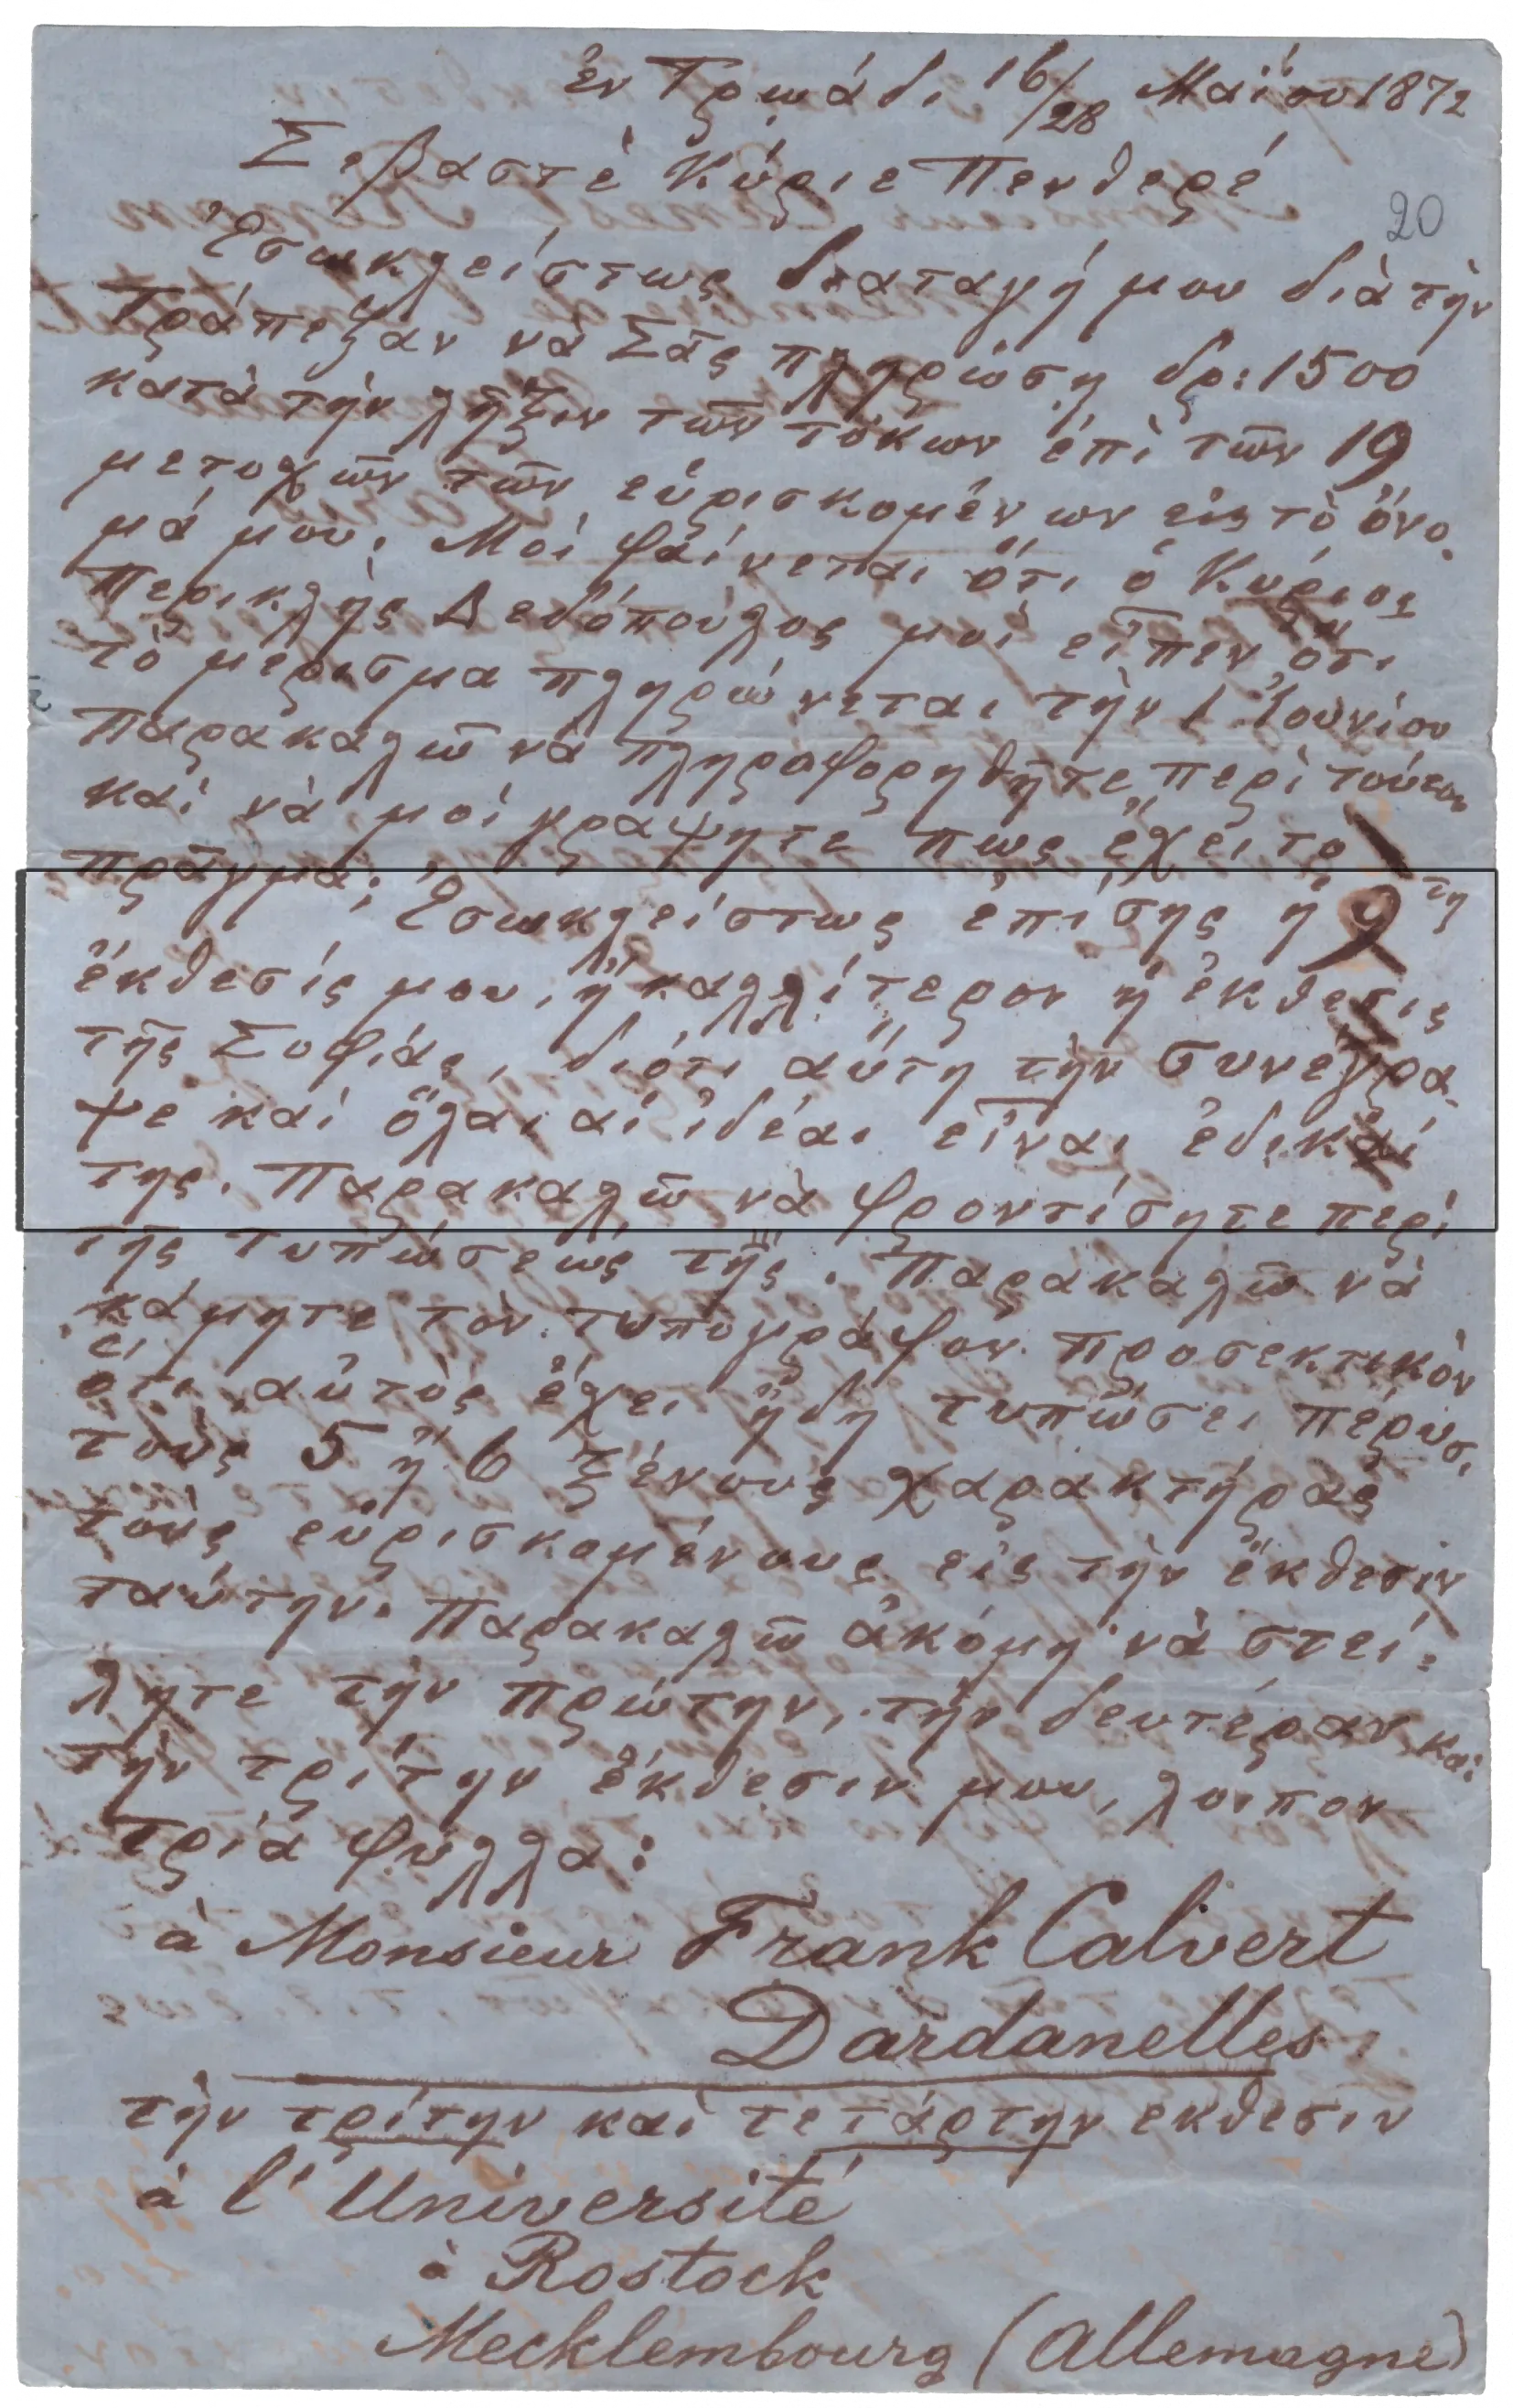 ἐν Τρῳάδι 16/28 Μαΐου 1872
Σεβαστὲ Κύριε Πενθερέ
20
Ἐσωκλείστως διαταγή μου διὰ τὴν
Τράπεζαν νὰ Σᾶς πληρώσῃ δρ: 1500
κατὰ τὴν λῆξιν τῶν τόκων ἐπὶ τῶν 19
μετοχῶν τῶν εὑρισκομένων εἰς τὸ ὄνο-
μά μου. Μοὶ φαίνεται ὅτι ὁ Κύριος
Περικλῆς Δεδόπουλος μοὶ εἶπεν ὅτι
τὸ μέρισμα πληρώνεται τὴν 1 Ἰουνίου
Παρακαλῶ νὰ πληροφορηθῆτε περὶ τούτου
καὶ νὰ μοὶ γράψητε πως ἔχει τὸ
πρᾶγμα; Ἐσωκλείστως ἐπίσης ἡ 9τη
ἔκθεσίς μου, ἢ καλλίτερον ἡ ἔκθεσις
τῆς Σοφίας, διότι αὕτη τὴν συνέγρα-
ψε καὶ ὅλαι αἱ ἰδέαι εἶναι ἐδικαί
της. Παρακαλῶ νὰ φροντίσητε περὶ
τῆς τυπώσεως τῆς. Παρακαλῶ νὰ
κάμητε τὸν τυπογράφον προσεκτικὸν
ὅτι αὐτὸς ἔχει ἤδη τυπώσει πέρυσι
τοὺς 5 ἢ 6 ξένους χαρακτήρας
τοὺς εὑρισκομένους εἰς τὴν ἔκθεσιν
ταύτην. Παρακαλῶ ἀκόμη νὰ στεί-
λητε τὴν πρώτην, τὴν δευτέραν καὶ
τὴν τρίτην ἔκθεσιν μου, λοιπον
τρία φύλλα:
à Monsieur Frank Calvert
Dardanelles
τὴν τρίτην καὶ τετάρτην εκθεσιν
à l'Université
à Rostock
Mecklembourg (Allemagne)